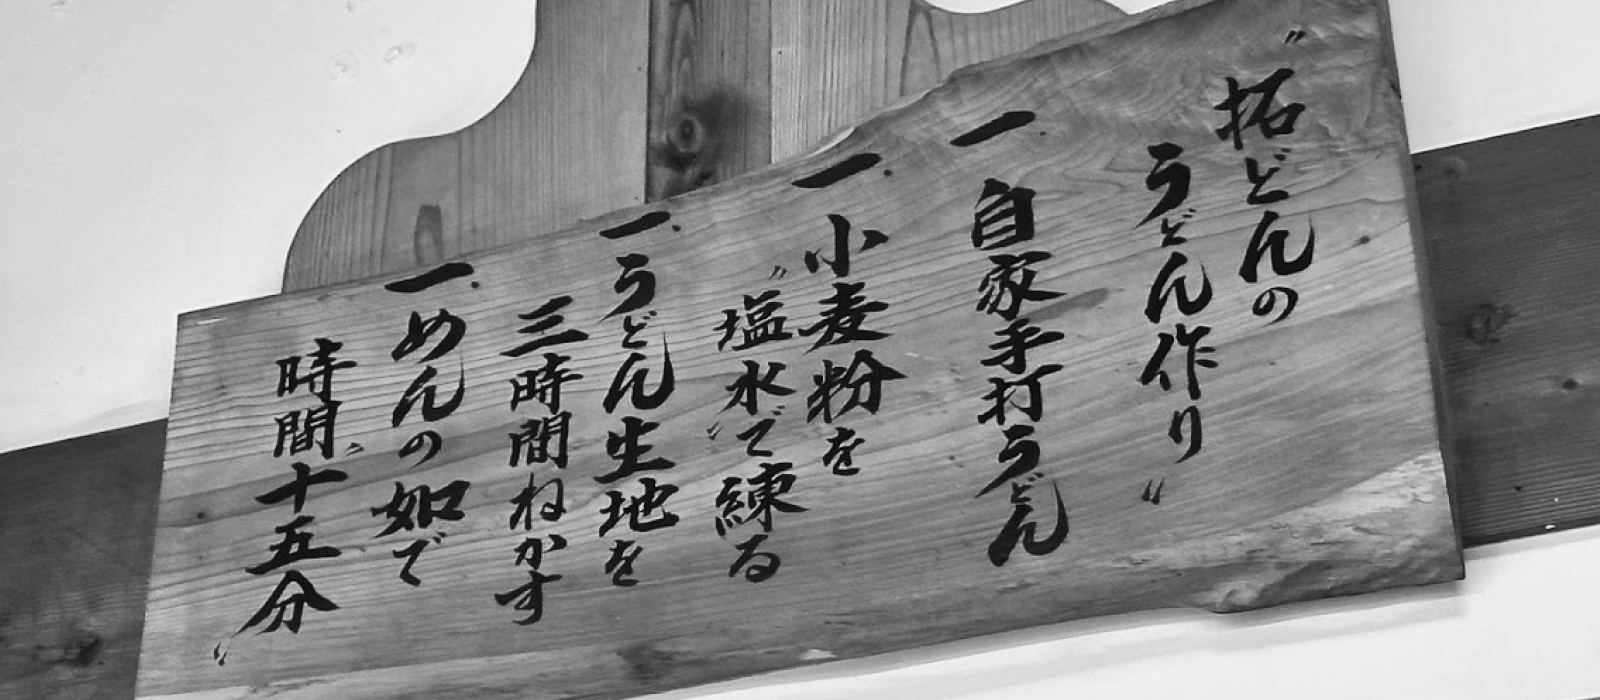 〝拓どんの
うどん作り〟
一、自家手打うどん
一、小麦粉を
〝塩水〟で練る
一、うどん生地を
三時間ねかす
一、めんの如で
時間〝十五分〟